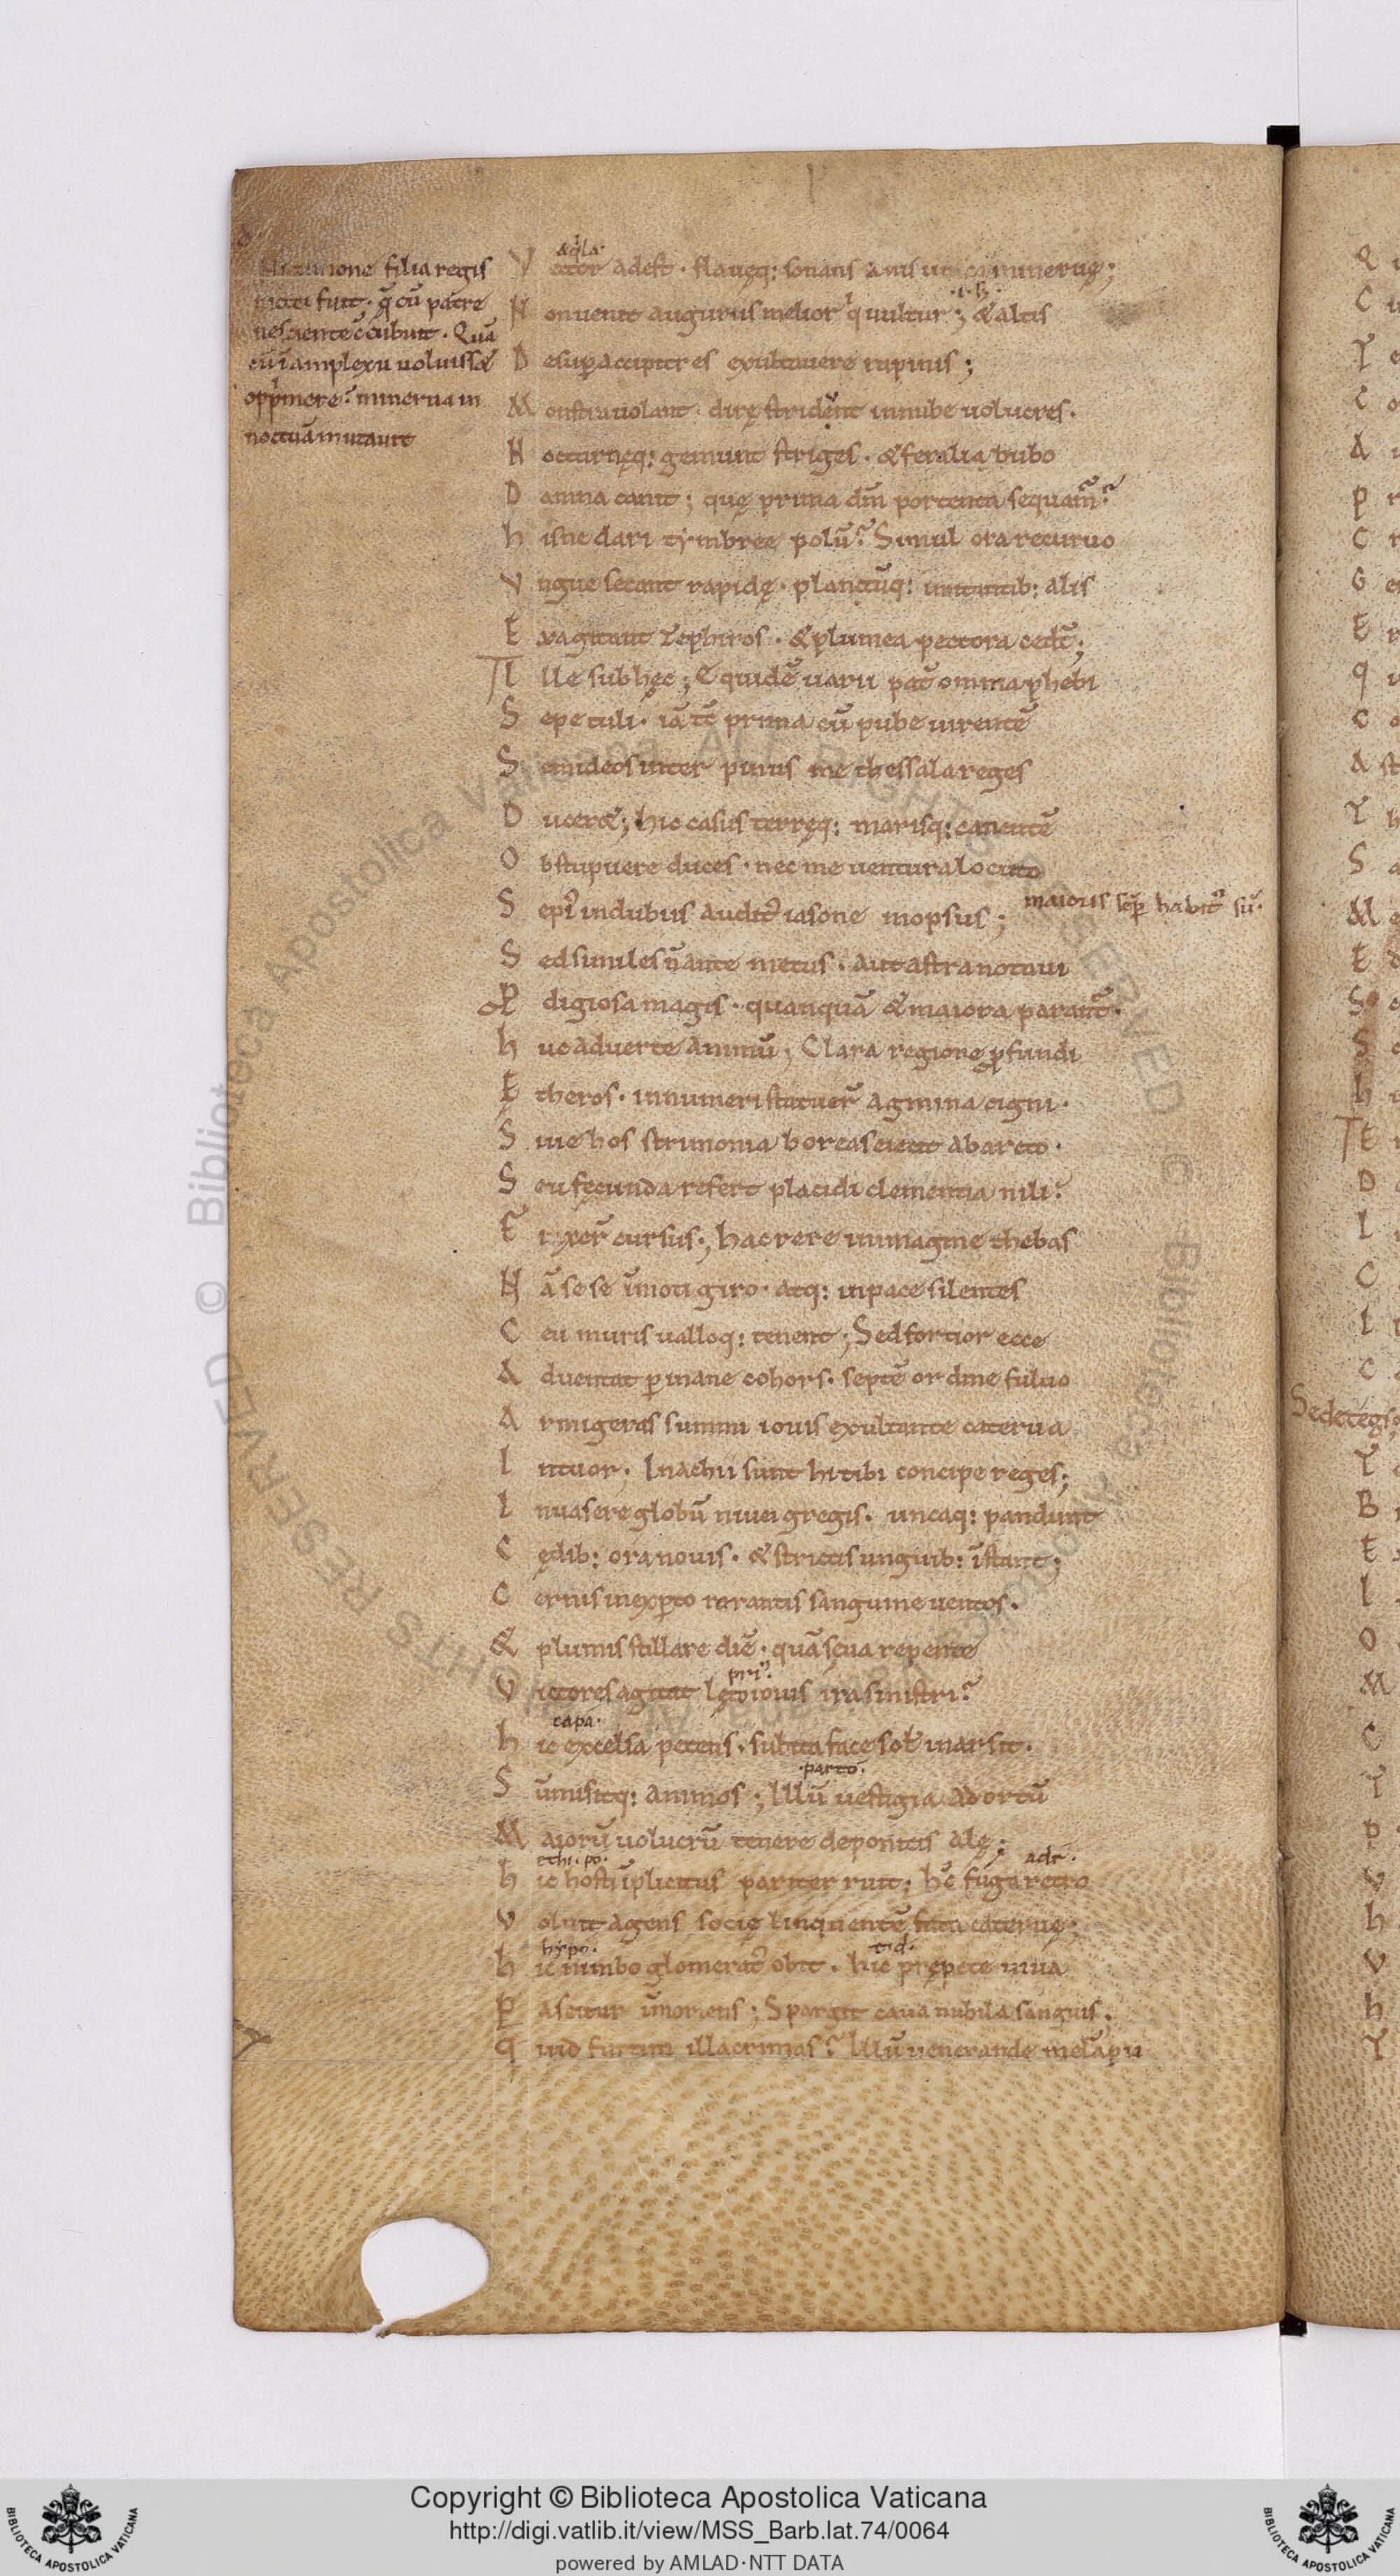 filia regis
fuit · q̄ cū patre
c̄cubuit · Quā
cū ī amplexu uoluiss&
opp͛mere · minerua in
noctuā mutauit
aq͛la·
V ctor adest · flauęq: sonans auis un ca mineruę;
·i·
N on uenit auguriis melior q͛ uultur ; & altis
D esup̱ accipitres exultauere rapinis ;
M onstra uolant · dirę strident in nube uolucres ·
N octurnęq: gemunt striges · & feralia bubo
D amna canit ; quę prima dm̄ portenta sequam̃ ?
h isne dari tymbree polū ? Simul ora recuruo
V ngue secant rapidę · planctūq: imitantib: alis
E xagitant Zephiros · & plumea pectora cedt̄ ;
I lle sub hęc ; Equidē uarii pat̄ omina phebi
S epe tuli · iā tē prima cū pube uirentē
S emideos inter pinus me thessala reges
D ucer& ; hic casus terręq: marisq: canentē
O bstupuere duces · nec me uentura locuto
S epi͛ in dubiis audit͛ iasone mopsus ;
maioris sēp̱ habit͛ sū·
S ed similes n̄ ante metus · aut astra notaui
P̱ digiosa magis · quanquā & maiora parant̃ ·
h uc aduerte animū ; Clara regione p̱fundi
E theros · innumeri statuer̄ agmina cigni ·
S iue hos strimonia boreas eiecit ab arcto ·
S eu fęcunda refert placidi clementia nili ?
F̄ ixer̄ cursus ; hac rere in imagine thebas
N ā sese īmoti giro · atq: in pace silentes
C eu muris ualloq: tenent ; Sed fortior ecce
A duentat p̱ inane cohors · septē ordine fuluo
A rmigeras summi iouis exultante caterua
I ntuor · Inachii sunt hi tibi concipe reges ;
I nuasere globū niuei gregis · uncaq: pandunt
C ędib: ora nouis · & strictis unguib: īstant ;
C ernis inexp̱to rorantis sanguine uentos ·
& plumis stillare diē · quā sęua repente
pri͛·
V ictores agitat lęto iouis ira sinistri ?
capa·
h ic excelsa petens · subita face sol͛ inarsit ·
·parto·
S ūmisitq: animos ; Illū uestigia adortū
M aiorū uolucrū tenere deponitis alę ;
adr·
h ic hosti īplicitus pariter ruit ; hc̄ fuga retro
V oluit agens socię linquentē fata cateruę ;
hypo· tid·
h ic nimbo glomerat͛ obit · hic prępete uiua
P ascitur īmoriens ; Spargit caua nubila sanguis ·
Q uid furtim illacrimas ? Illū uenerande melāpu
Copyright © Biblioteca Apostolica Vaticana
http://digi.vatlib.it/view/MSS_Barb.lat.74/0064
powered by AMLAD·NTT DATA